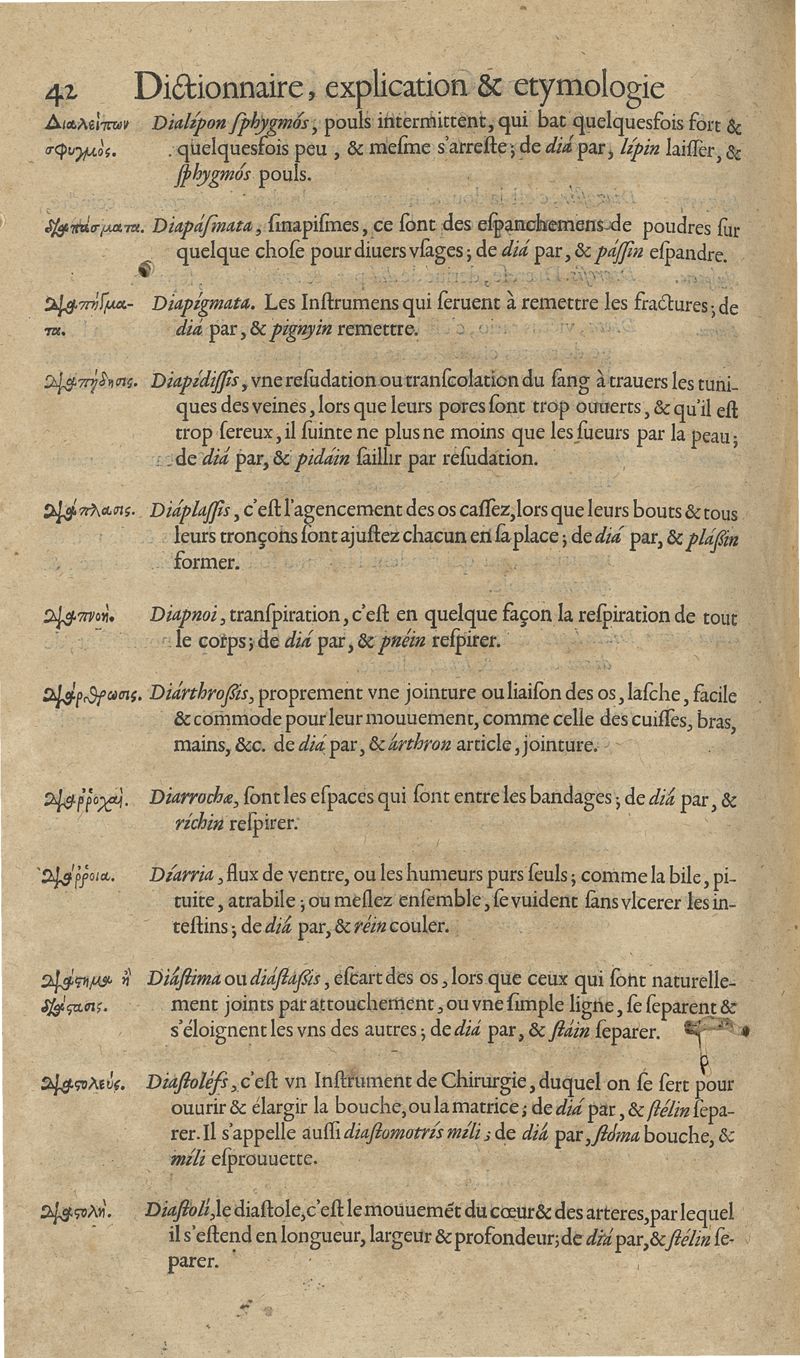 42 Dictionnaire, explication & etymologie
Διαλείπων Dialípon ſphygmós, pouls intermittent, qui bat quelquesfois fort &
σφυγμὸς. quelquesfois peu, & meſme s'arreſte; de diá par, lípin laiſſer, &
ſphygmós pouls.
διαπάσματα. Diapáſmata, ſinapiſmes, ce ſont des eſpanchemens de poudres ſur
quelque choſe pour diuers vſages; de diá par, & páſſin eſpandre.
διαπήγμα- Diapígmata. Les Inſtrumens qui ſeruent à remettre les fractures; de
τα. diá par, & pignyin remettre.
διαπήδησις. Diapídiſſis, vne reſudation ou tranſcolation du ſang à trauers les tuni-
ques des veines, lors que leurs pores ſont trop ouuerts, & qu'il eſt
trop ſereux, il ſuinte ne plus ne moins que les ſueurs par la peau;
de diá par, & pidáin ſaillir par reſudation.
διάπλασις. Diáplaſſis, c'eſt l'agencement des os caſſez, lors que leurs bouts & tous
leurs tronçons ſont ajuſtez chacun en ſa place; de diá par, & pláßin
former.
διαπνοή. Diapnoi, tranſpiration, c'eſt en quelque façon la reſpiration de tout
le corps; de diá par, & pnéin reſpirer.
διάρθρωσις. Diárthroßis, proprement vne jointure ou liaiſon des os, laſche, facile
& commode pour leur mouuement, comme celle des cuiſſes, bras,
mains, &c. de diá par, & árthron article, jointure.
διαῤῥοχαὶ. Diarrochæ, ſont les eſpaces qui ſont entre les bandages; de diá par, &
ríchin reſpirer.
διάῤῥοια. Díarria, flux de ventre, ou les humeurs purs ſeuls; comme la bile, pi-
tuite, atrabile; ou meſlez enſemble, ſe vuident ſans vlcerer les in-
teſtins; de diá par, & réin couler.
διάϛημα ἢ Diáſtima ou diáſtaßis, eſcart des os, lors que ceux qui ſont naturelle-
διάϛασις. ment joints par attouchement, ou vne ſimple ligne, ſe ſeparent &
s'éloignent les vns des autres; de diá par, & ſtáin ſeparer.
διαϛολεύς. Diaſtoléfs, c'eſt vn Inſtrument de Chirurgie, duquel on ſe ſert pour
ouurir & élargir la bouche, ou la matrice; de diá par, & ſtélin ſepa-
rer. Il s'appelle auſſi diaſtomotrís míli; de diá par, ſtóma bouche, &
míli eſprouuette.
διαϛολὴ. Diaſtolí, le diaſtole, c'eſt le mouuemẽt du cœur & des arteres, par lequel
il s'eſtend en longueur, largeur & profondeur; de diá par, & ſtélin ſe-
parer.